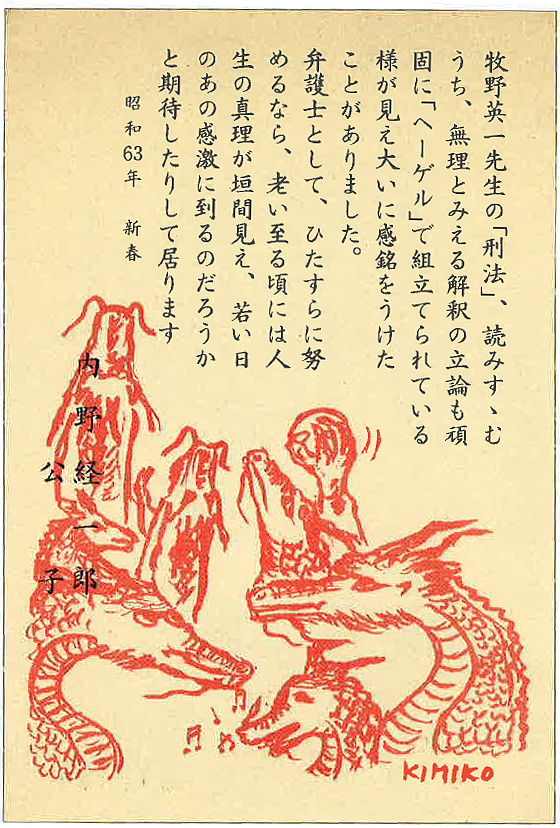 牧野英一先生の「刑法」、読みすゝむ
うち、無理とみえる解釈の立論も頑
固に「ヘーゲル」で組立てられている
様が見え大いに感銘をうけた
ことがありました。
弁護士として、ひたすらに努
めるなら、老い至る頃には人
生の真理が垣間見え、若い日
のあの感激に到るのだろうか
と期待したりして居ります
昭和63年 新春
内野経一郎
公子
KIMIKO